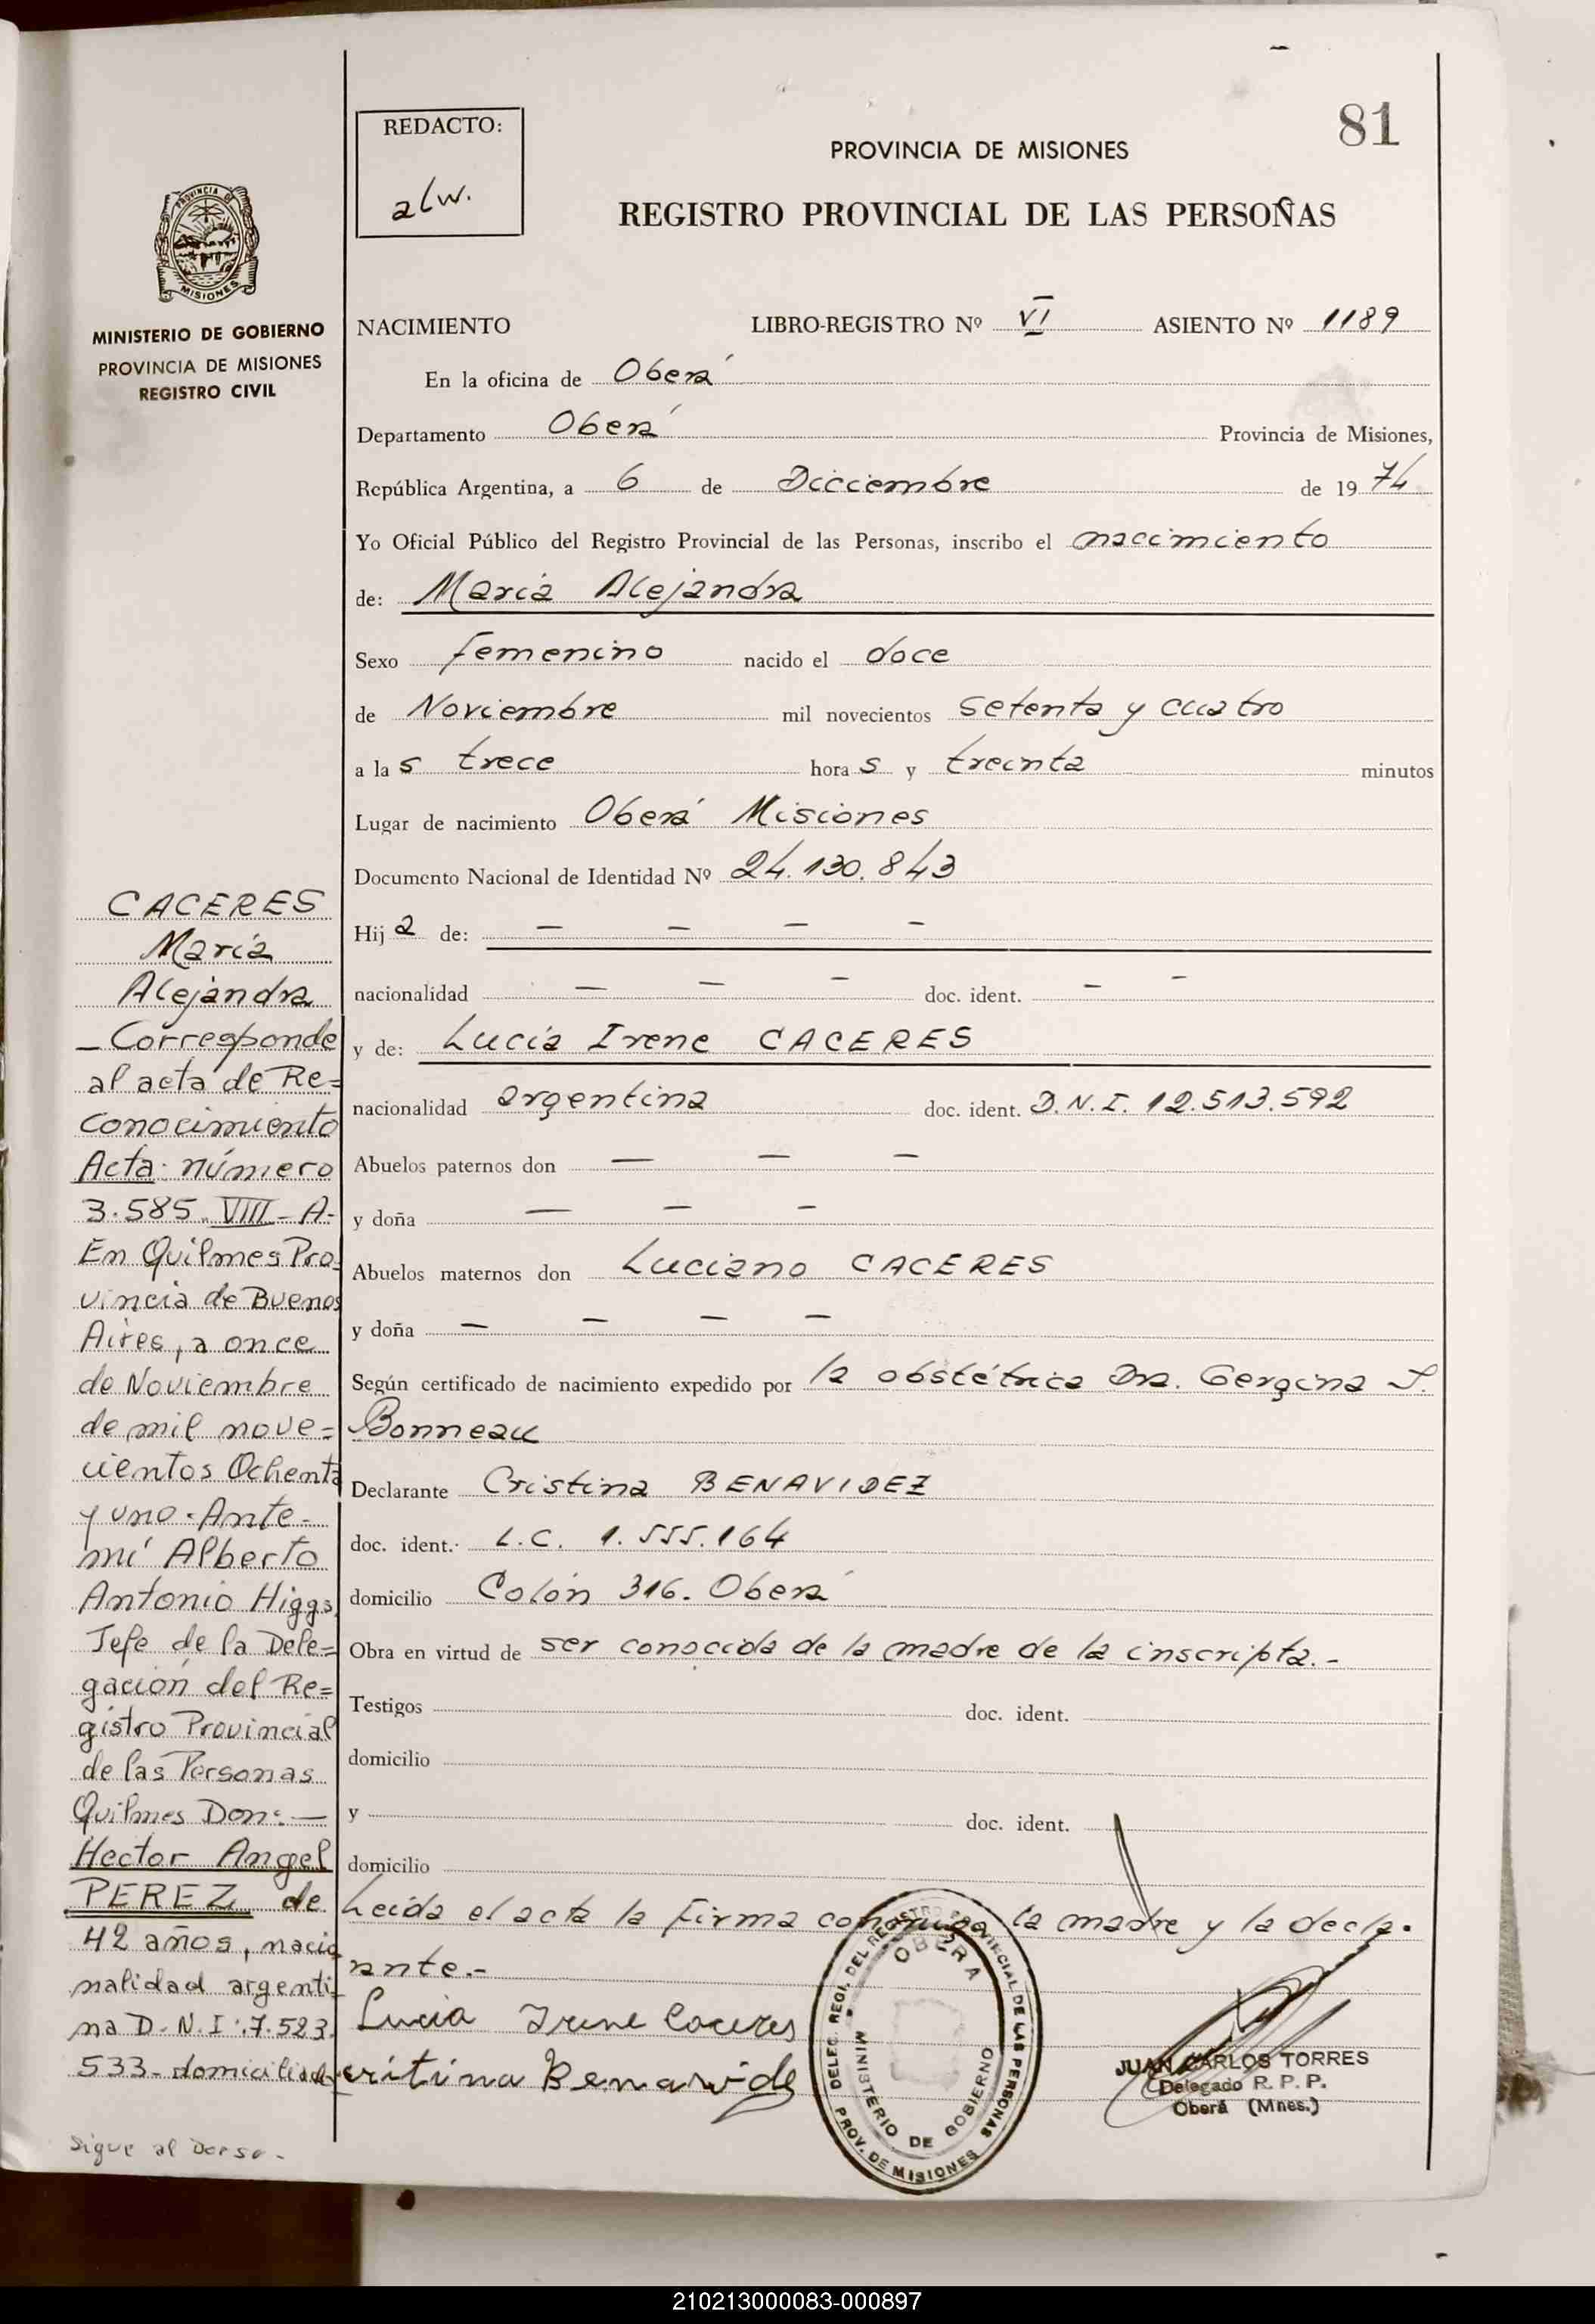 81
REDACTO:
alw.
PROVINCIA DE MISIONES
REGISTRO PROVINCIAL DE LAS PERSOÑAS
PROVINCIA DE
MISIONES
MINISTERIO DE GOBIERNO
PROVINCIA DE MISIONES
REGISTRO CIVIL
NACIMIENTO LIBRO-REGISTRO Nº VI ASIENTO Nº 1189
En la oficina de Oberá
Departamento Oberá Provincia de Misiones,
República Argentina, a 6 de Dicciembre de 1974
Yo Oficial Público del Registro Provincial de las Personas, inscribo el nacimiento
de: María Alejandra
Sexo femenino nacido el doce
de Noviembre mil novecientos setenta y cuatro
a las trece horas y treinta minutos
Lugar de nacimiento Oberá Misiones
Documento Nacional de Identidad Nº 24.130.843
Hija de: — — — —
nacionalidad — — — doc. ident. — —
y de: Lucía Irene CACERES
nacionalidad argentina doc. ident. D.N.I. 12.513.592
Abuelos paternos don — — —
y doña — — —
Abuelos maternos don Luciano CACERES
y doña — — — —
Según certificado de nacimiento expedido por la obstétrica Dra. Gergina J.
Bonneau
Declarante Cristina BENAVIDEZ
doc. ident. L.C. 1.555.164
domicilio Colón 316. Oberá
Obra en virtud de ser conocida de la madre de la inscripta.-
Testigos doc. ident.
domicilio
y doc. ident.
domicilio
Leída el acta la firma conmigo la madre y la decla-
rante.-
Lucia Irene Caceres
cristina Benavide
DELEG. REGI. DEL REGISTRO PROVINCIAL DE LAS PERSONAS
OBERA
MINISTERIO DE GOBIERNO
PROV. DE MISIONES
JUAN CARLOS TORRES
Delegado R. P. P.
Oberá (Mnes.)
CACERES
María
Alejandra
_Corresponde
al acta de Re=
conocimiento
Acta: número
3.585. VIII - A-
En Quilmes Pro
vincia de Buenos
Aires, a once
de Noviembre
de mil nove=
cientos Ochenta
y uno. Ante-
mí Alberto
Antonio Higgs,
Jefe de la Dele=
gación del Re=
gistro Provincial
de las Personas
Quilmes Don: —
Hector Angel
PEREZ de
42 años, nacio
nalidad argenti
na D.N.I. 7.523.
533- domiciliado
Sigue al Dorso -
210213000083-000897